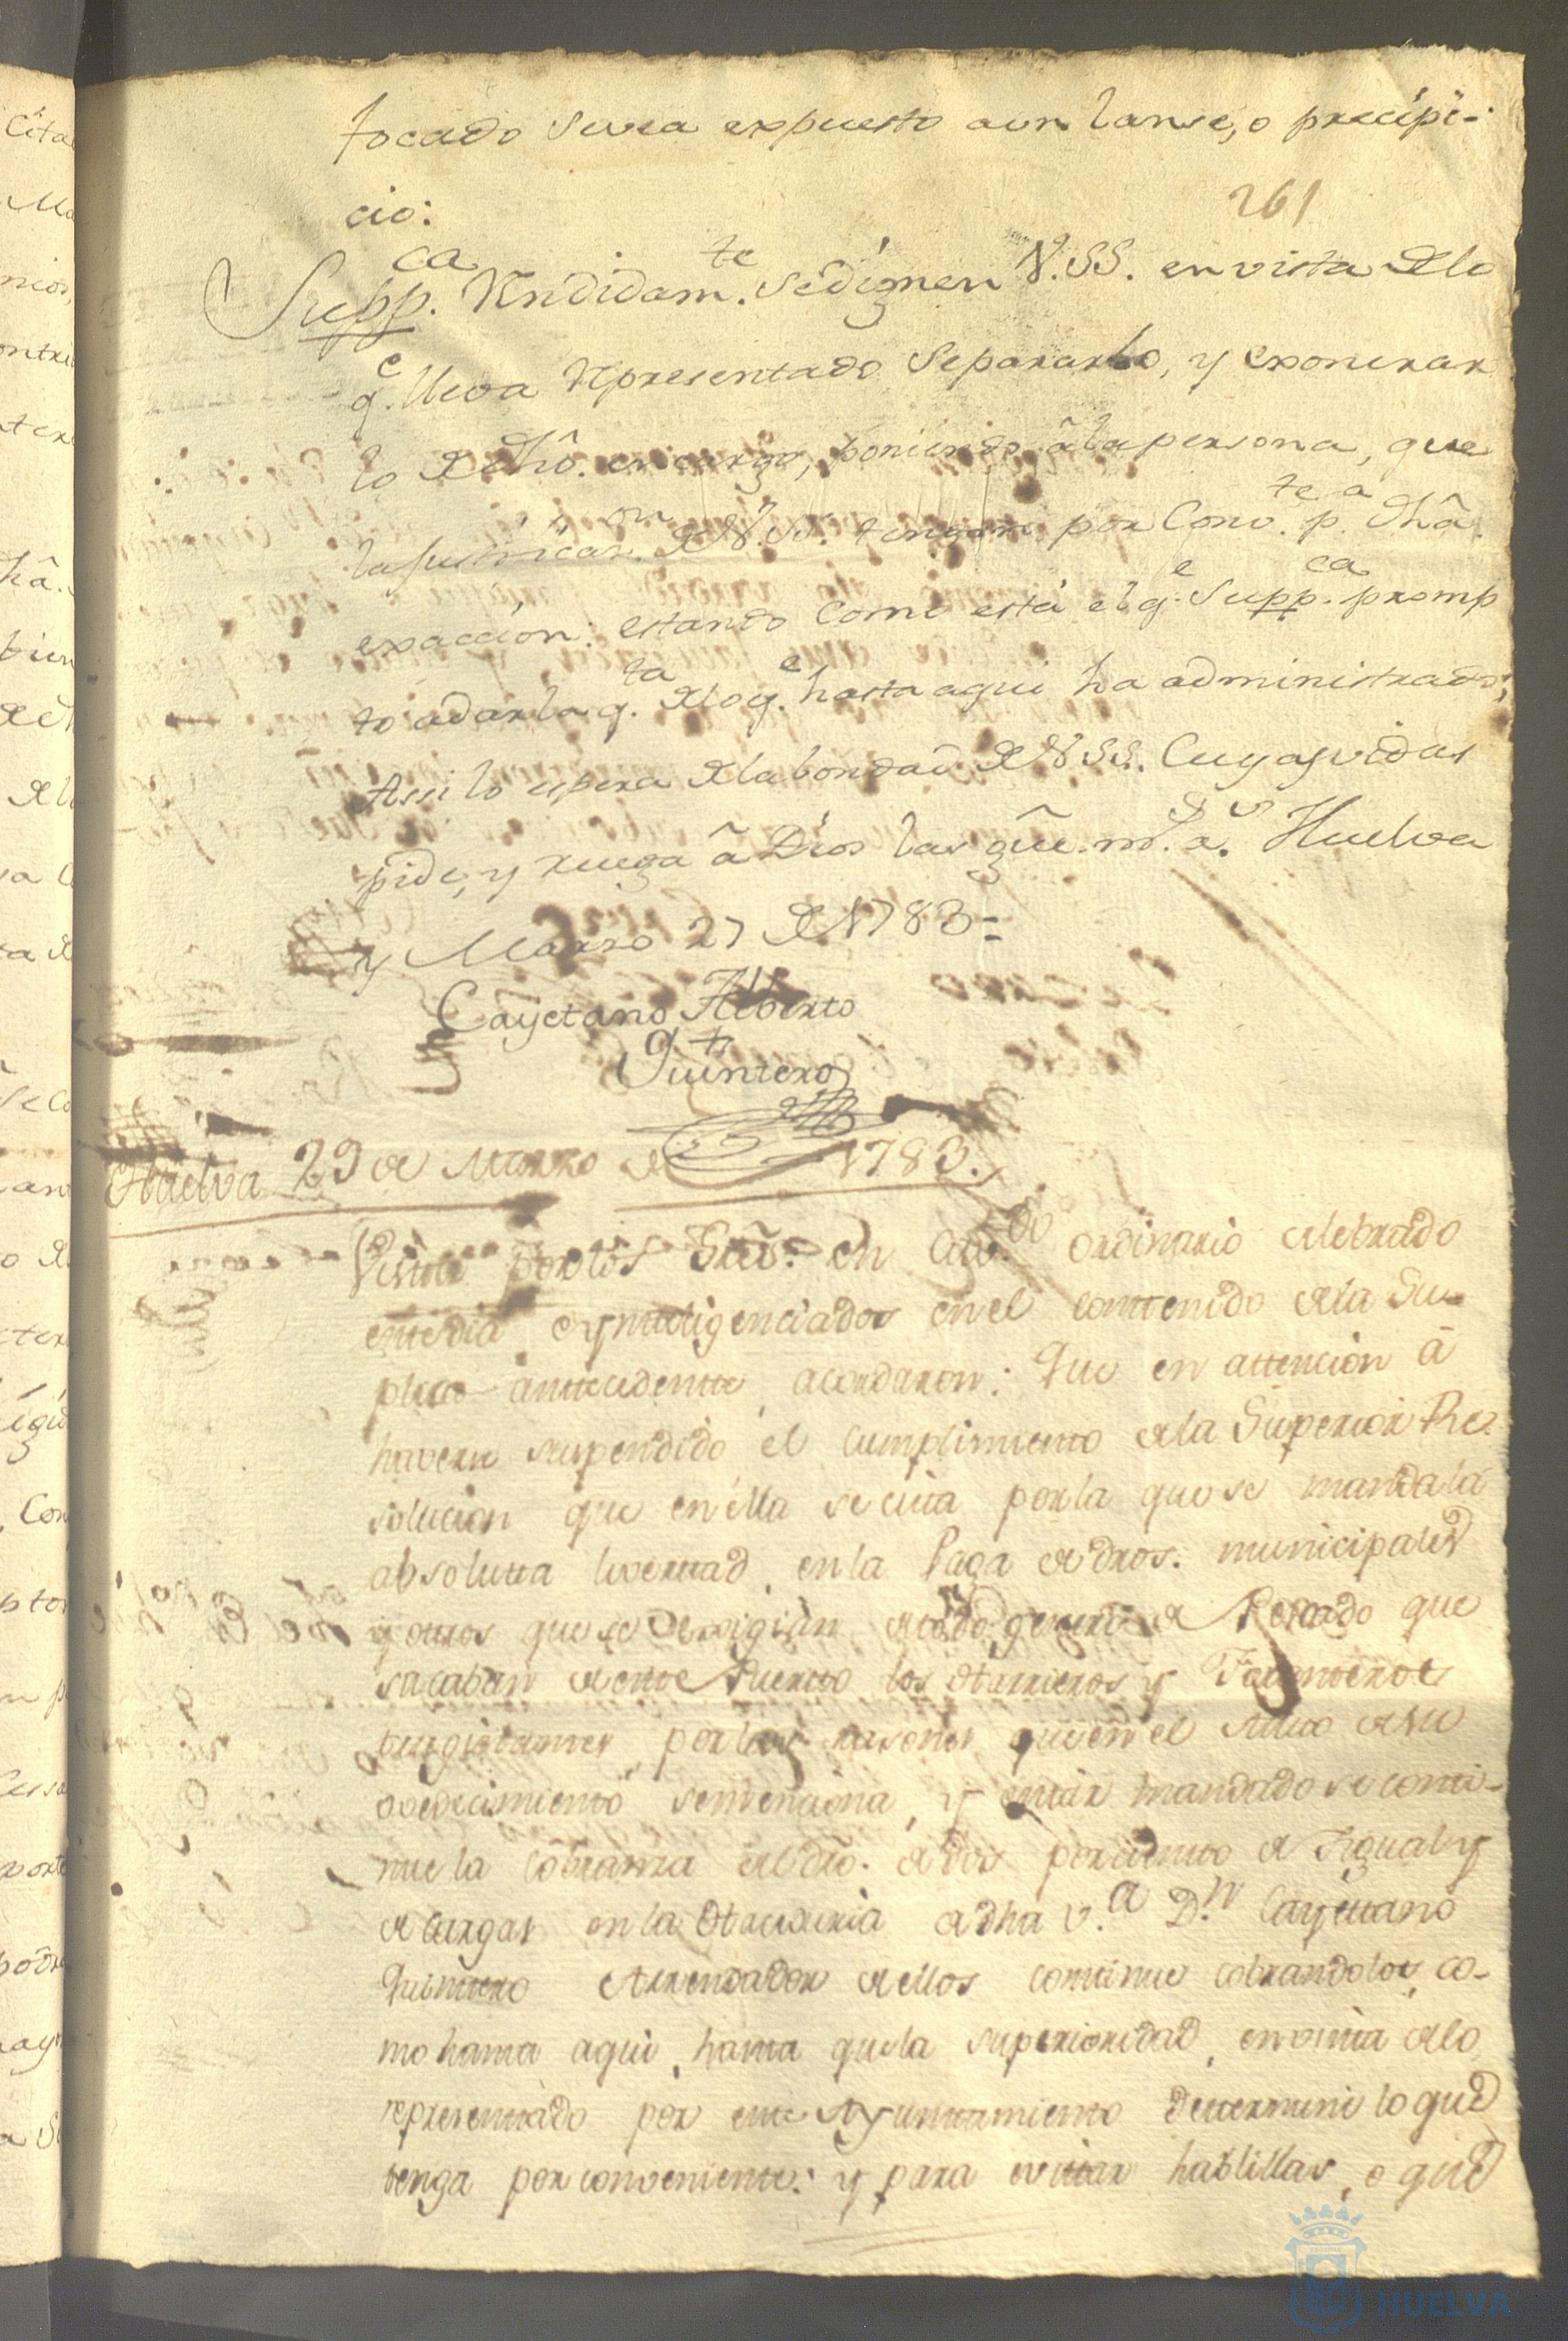 tocado se vea expuesto a un lanse, o precipi-
cio:
261
Supp.ca Rendidam.te se dignen V.SS. en vista de lo
q.e lleva representado separarlo, y exonerar
lo de dhô. encargo, poniendo â la persona, que
la justificac.on de V.SS. tengan por Conv.te p.a dhâ.
exaccion: estando como está el q.e Supp.ca promp
to a dar la q.ta de lo q.e hasta aqui ha administrado;
Assi lo espera de la bondad de V.SS. Cuyas vidas
pide, y ruega â Dios las gûe. m.s a.s Huelva
y Marzo 27 de 1783=
Cayetano Alberto
Quintero
Huelva 29 de Marzo de 1783.
Vistto por los Srês. en Cav.do ordinario celebrado
estte dia, e yntteligenciados en el conttenido de la Su-
plica anttecedentte, acordaron: Que en attencion â
haverse suspendido el cumplimientto de la Superior Re-
solucion que en élla se citta por la que se manda la
absolutta livertad en la Paga de dros. municipales
y ottros que se exigian de todo genero de Pescado que
sacaban de estte Puertto los Harrieros y
por las rasones que en el Autto de su
ovedecimientto senttenciona, y esttár mandado se contti-
nue la cobranza del dro. de dos por cientto de Ygual y
de Cargas en la Hacienduria de dha v.a D.n Cayettano
Quinttero Arrendador de ellos conttinue cobrandolos, co-
mo hastta aqui, hastta que la superioridad, en vistta de lo
representtado por estte Ayunttamientto dettermine lo que
tenga por convenientte: y para evittar hablillas, o que
HUELVA